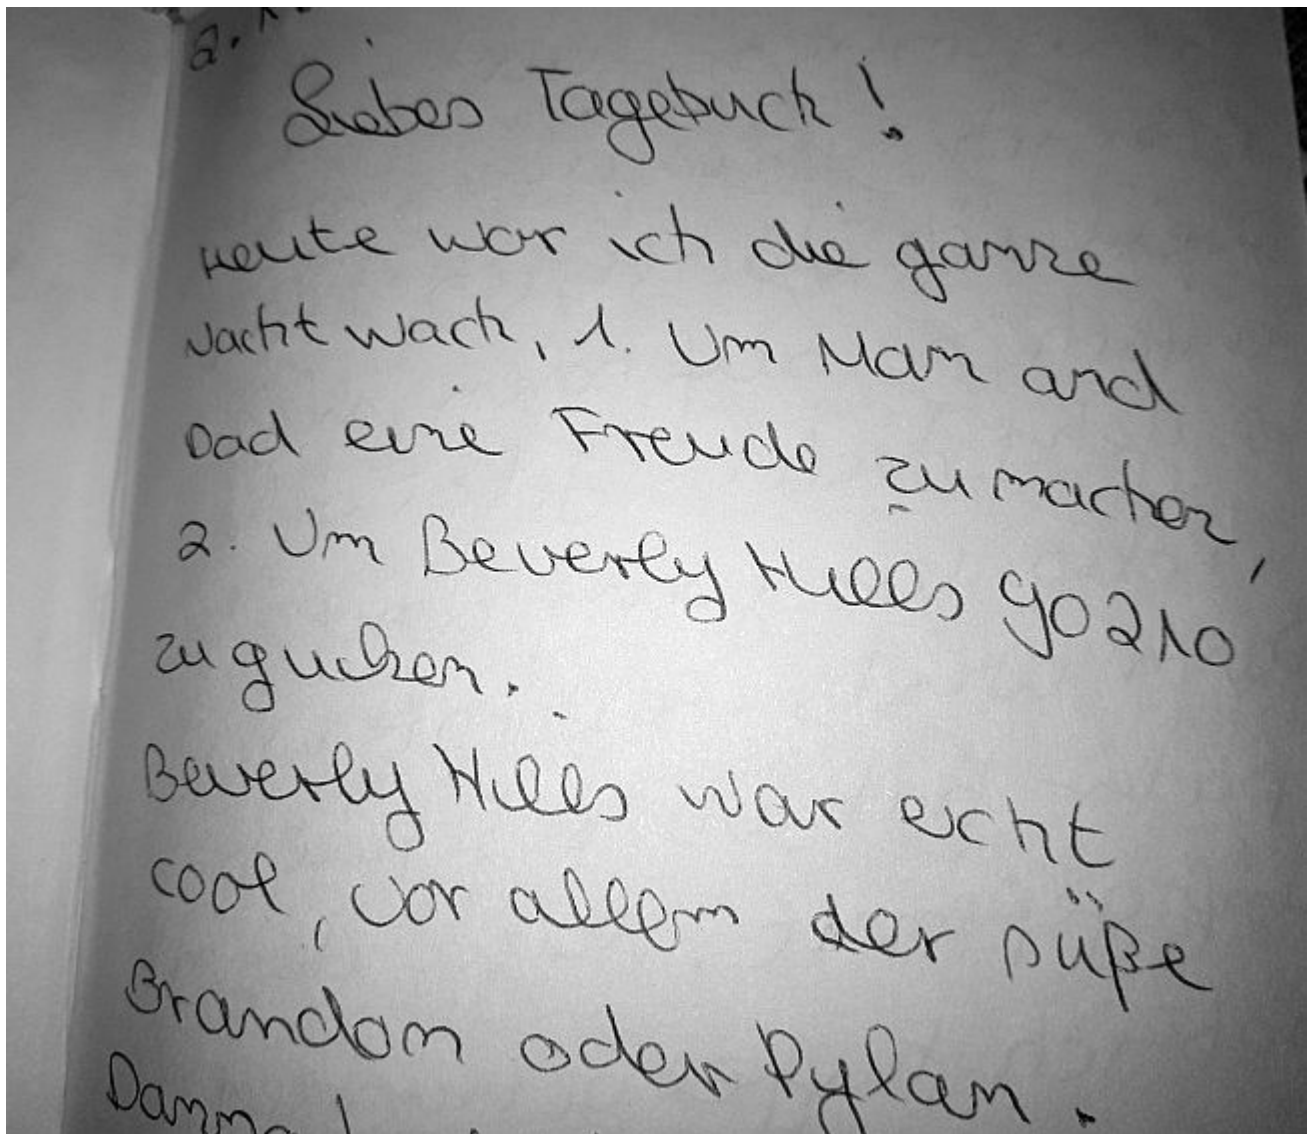 2.
Liebes Tagebuch!
Heute war ich die ganze
Nacht wach, 1. Um Mam and
Dad eine Freude zu machen,
2. Um Beverly Hills 90210
zu gucken.
Beverly Hills war echt
cool, vor allem der süße
Brandon oder Dylan.